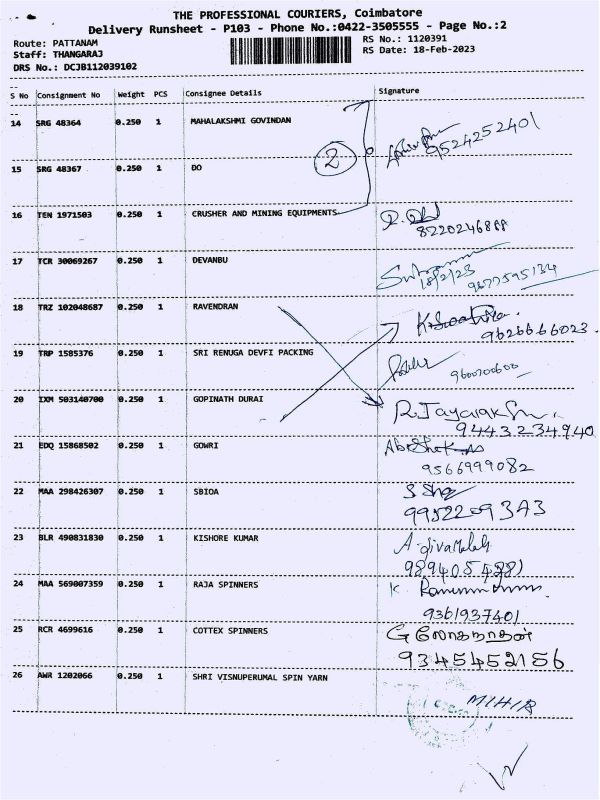 THE PROFESSIONAL COURIERS, Coimbatore
Delivery Runsheet - P103 - Phone No.:0422-3505555 - Page No.:2
Route: PATTANAM
RS No.: 1120391
Staff: THANGARAJ
RS Date: 18-Feb-2023
DRS No.: DCJB112039102
S No Consignment No Weight PCS Consignee Details Signature
14 SRG 48364 0.250 1 MAHALAKSHMI GOVINDAN
2
9524252401
15 SRG 48367 0.250 1 DO
16 TEN 1971503 0.250 1 CRUSHER AND MINING EQUIPMENTS
8220246888
17 TCR 30069267 0.250 1 DEVANBU
18/2/23 9677595134
18 TRZ 102048687 0.250 1 RAVENDRAN
9626666023
19 TRP 1585376 0.250 1 SRI RENUGA DEVFI PACKING
9600700600
20 IXM 503140700 0.250 1 GOPINATH DURAI
9443234940
21 EDQ 15868502 0.250 1 GOWRI
9566999082
22 MAA 298426307 0.250 1 SBIOA
9952209343
23 BLR 490831830 0.250 1 KISHORE KUMAR
24 MAA 569007359 0.250 1 RAJA SPINNERS
9361937401
25 RCR 4699616 0.250 1 COTTEX SPINNERS
G லோகநாதன்
9345452156
26 AWR 1202066 0.250 1 SHRI VISNUPERUMAL SPIN YARN
MIHIR